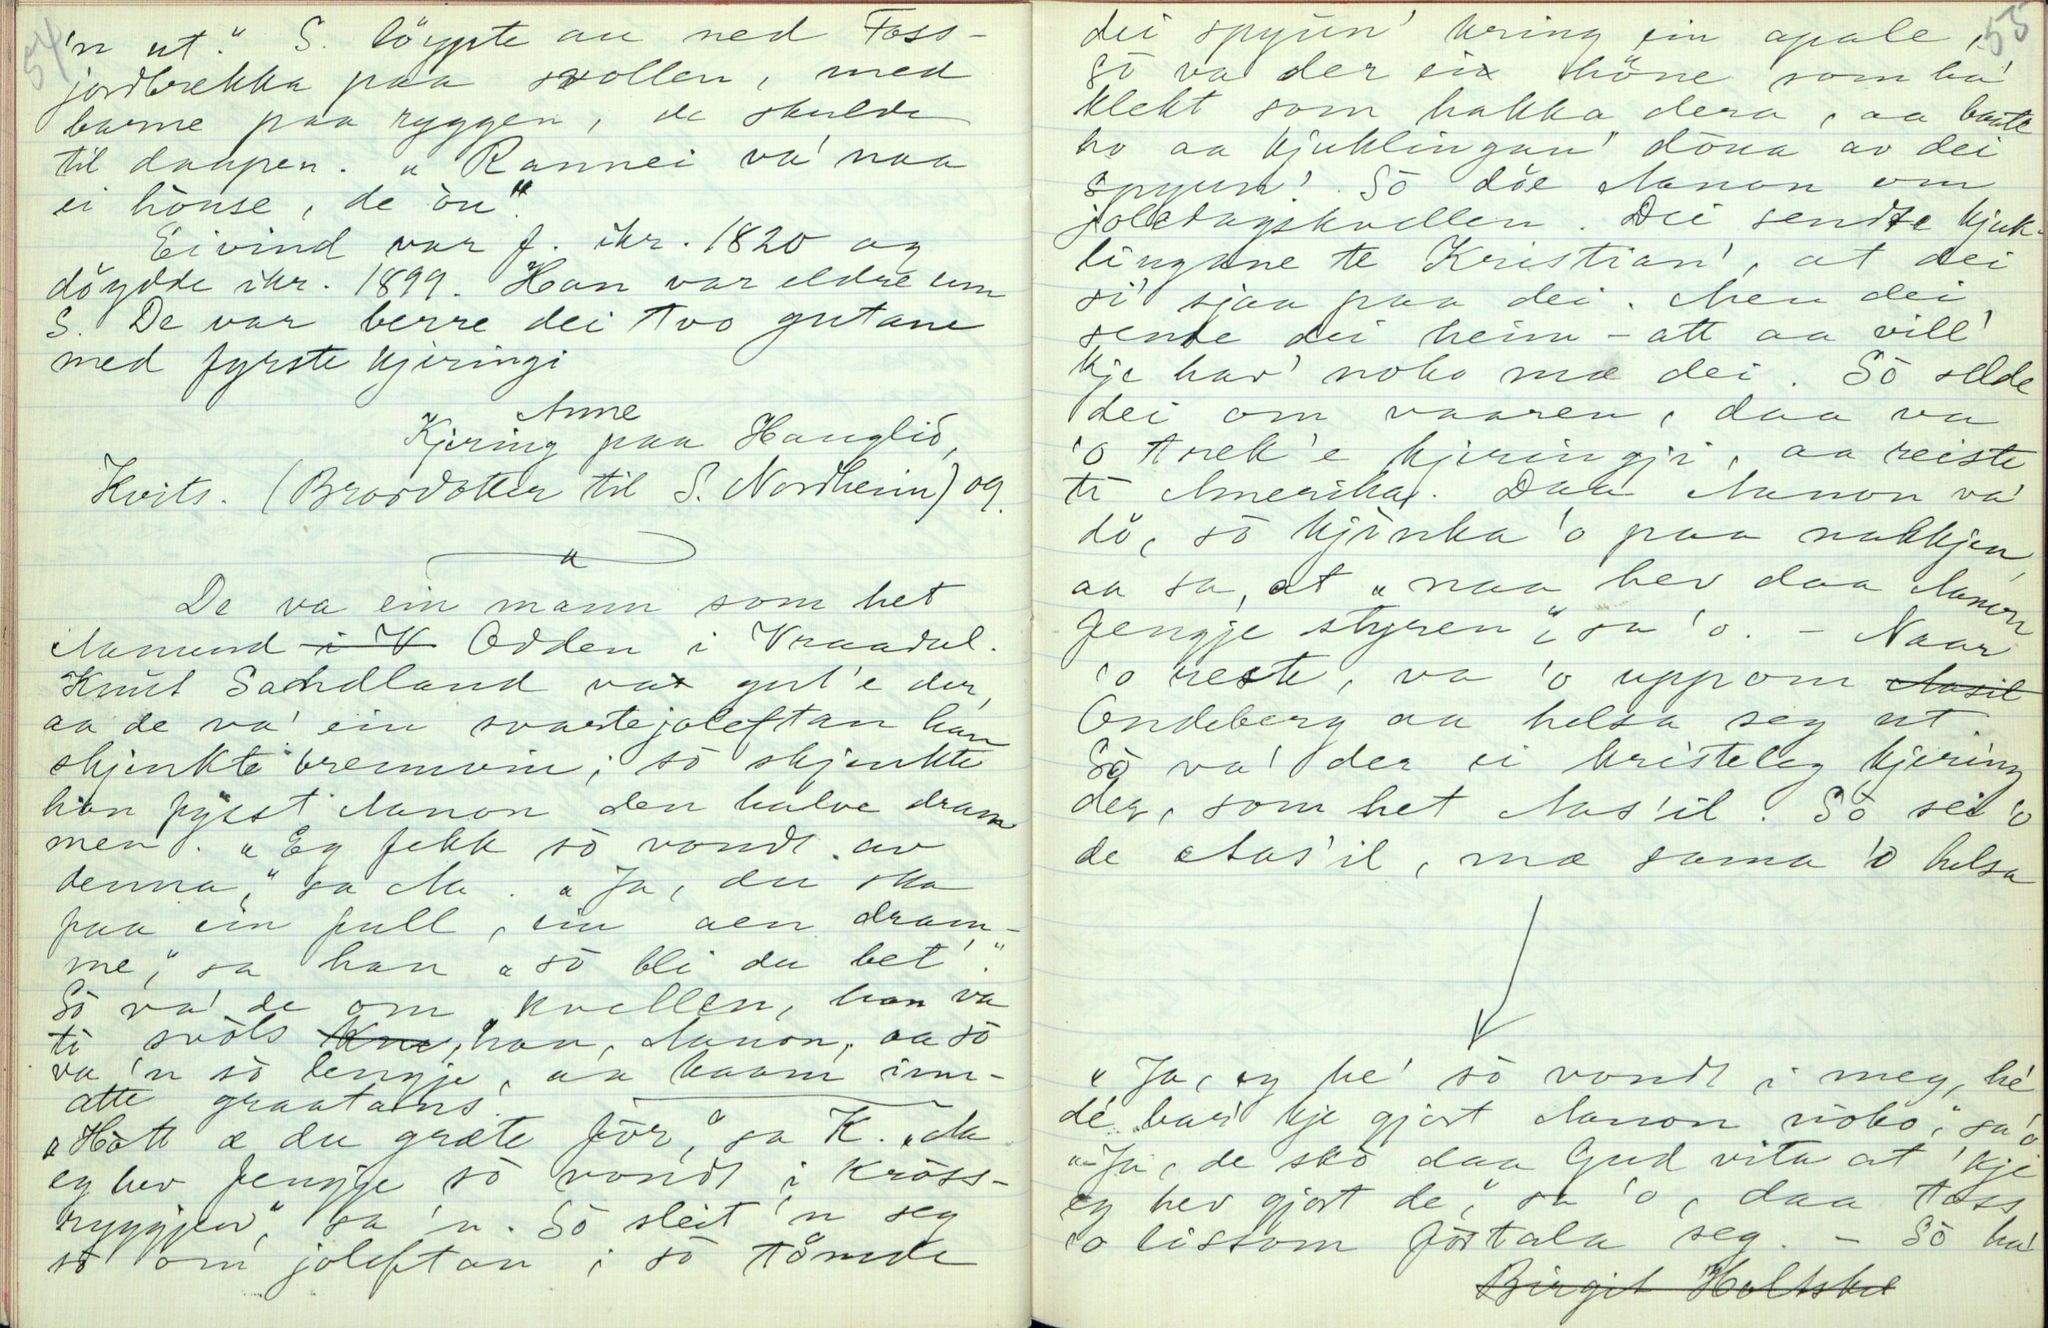 54
'n ut." S. löypte au ned Foss-
jordbrekka paa svollen, med
barne paa ryggen, de skulde
til daapen. "Rannei va' naa
ei hönse, de òu".
Eivind var f. ikr. 1820 og
döydde ikr. 1899. Han var eldre enn
S. De var berre dei tvo gutane
med fyrste kjeringi
Anne
Kjering paa Hauglid,
Kvits. (Brordotter til S. Nordheim) 09.
"
De va ein mann som het
Aamund i V Odden i Vraadal.
Knut Sandland va gut'e der,
aa de va' ein svartejoleftan han
skjenkte brennvin; sò skjenkte
han fysst Aamon den halve dram
men. "Eg fekk sò vondt av
denna," sa Aa. "Ja, du ska
faa ein full, ein aen dram-
me," sa han "sò bli du bet'."
Sò va' de om kvellen, han va
ti svòls Knu, han, Aamon, aa sò
va 'n sò lengje, aa kaam inn-
atte graatans.
"Hott æ du græte för," sa K. "Aa
eg hev fengje sò vondt i kröss-
ryggjen," sa 'n. Sò sleit 'n seg
sò om joleftan; sò tömde
55
dei spyun' kring ein apale,
Sò va der ei höne som ha'
klekt som hakka dera, aa baate
ho aa kjuklingan' döua av dei
spyun'. Sò döe Aamon om
joledagskvellen. Dei sendte kjuk-
lingane te Kristian', at dei
si' sjaa paa dei. Men dei
sende dei heim-att aa vill'
kje hav' noko mæ dei. Sò selde
dei om vaaren, daa va
'o trek'e kjeringji, aa reiste
ti Amerika. Daa Aamon va'
dö, sò kjinka 'o paa nakkjen,
aa sa, at "naa hev daa Aamon
fengje styren", sa 'o. - Naar
'o reste, va 'o uppom Aasil
Ondeberg aa helsa seg ut
Sò va' der ei kristeleg kjering
der, som het Aas'il. Sò sei 'o
de Aas'il, mæ sama 'o helsa
"Ja, eg he' sò vondt i meg, he'
de bar' kje gjort Aamon noko," sa 'o
"Ja, de skò daa Gud vita at 'kje
eg hev gjort de," sa 'o, daa toss
'o lissom försala seg. - Sò ha'
Birgit Holtskil